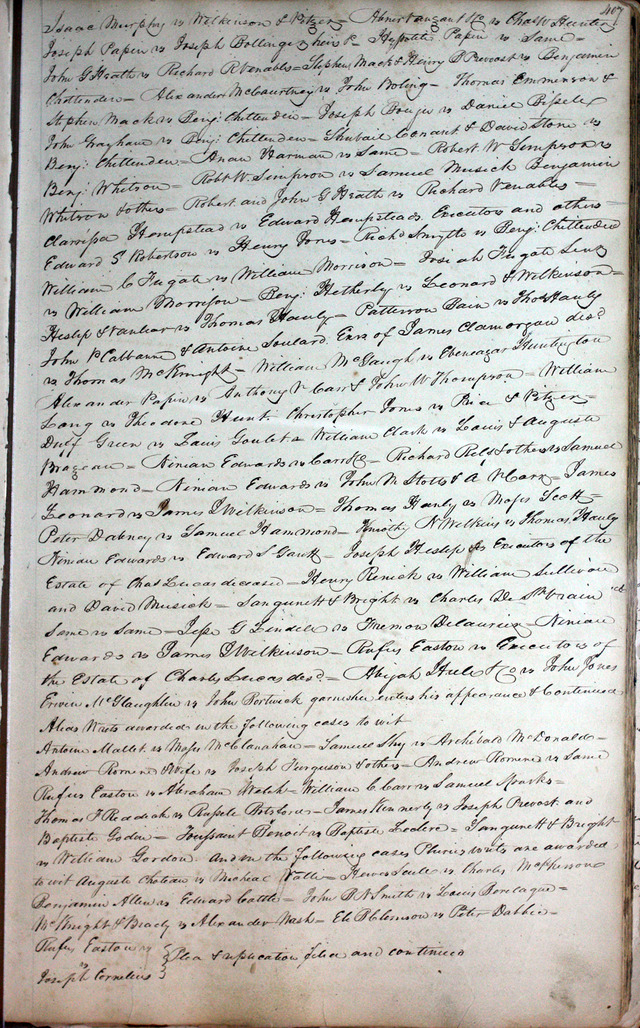 407
Isaac Murphy vs Wilkinson & Pitzer = Abner &c vs Chas W Hunter
Joseph Papin vs Joseph Bollinger heirs = Hypolite Papin vs Same =
John G Heath vs Richard R Venables = Stephen Mack & Henry B Prevost vs Benjamin
Chittenden = Alexander McCourtney vs John Boling = Thomas Emmerson &
Stephen Mack vs Benj: Chittenden = Joseph Bouju vs Daniel Bissele
John Grayham vs Benj: Chittenden = Shubail Conant & David Stone vs
Benj: Chittenden = Anan Harman vs Same = Robert W Simpson vs
Benj: Whitson = Robt W. Simpson vs Samuel Musick Benjamin
Whitson & others = Robert and John G Heath vs Richard Venables =
Clarissa Hempstead vs Edward Hempsteads Executors and others =
Edward S Robertson vs Henry Jones = Richd Smyth vs Benj: Chittenden
William C Fugate vs William Morrison = Josiah Fugate Senr
vs William Morrison = Benj: Hetherly vs Leonard & Wilkinson =
Heslep & vs Thomas Hanly = Patterson Bain vs Thos Hanly
John P Cabbanne & Antoine Soulard Exrs of James Clamorgan desd
vs Thomas McKnight = William McGaugh vs Ebeneazar Huntington
Alexander Papin vs Anthony V Carr & John W Thompson = William
Lang vs Theodore Hunt. Christopher Jones vs Rice & Pitzer =
Duff Green vs Louis Goulet = William Clark vs Louis & Auguste
Brazeau = Ninian Edwards vs Carr &c = Richard Relf & others vs Samuel
Hammond = Ninian Edwards vs John M Stotts & A V Carr = James
Leonard vs James I Wilkinson = Thomas Hanly vs Moses Scott =
Peter Dabney vs Samuel Hammond = Timothy N Wilkins vs Thomas Hanly
Ninian Edwards vs Edward S Gantt = Joseph Heslep vs Executors of the
Estate of Chas Lucas deceased = Henry Renick vs William Sullivan
and David Musick = Sanguenett & Bright vs Charles De St Vrain
Same vs Same = Jesse G Lindell vs Fremon Delauriere = Ninian
Edwards vs James I Wilkinson = Rufus Easton vs Executors of
the Estate of Charles Lucas desd = Abijah Hull & Co vs John Jones
Erwin McGlaughlin vs John Bostwick garnishee enters his appearance & Continued
Alias Writs awarded in the following cases to wit
Antoine Mallet. vs Moses McClanahan = Samuel Shy vs Archibald McDonald =
Andrew Romine & Wife vs Joseph Furguson & others = Andrew Romine vs Same
Rufus Easton vs Abraham Walsh = William C Carr vs Samuel Sparks =
Thomas F Riddick vs Russele = James Kennerly vs Joseph Prevost and
Baptiste Godin = Toussaint Benoit vs Baptiste Leclerc = Sanguenett & Bright
vs William Gordon. And in the following cases Pluries writs are awarded
to wit Auguste Choteau vs Micheal Walli = Hewes Scull vs Charles McPherson
Benjamin Allen vs Edward Cattle = John B N Smith vs Louis Borecague =
McKnight & Brady vs Alexander Nash = Eli B Clemson vs Peter Dabbie =
Rufus Easton
vs } Plea & replication filed and continued
Joseph Cornelius